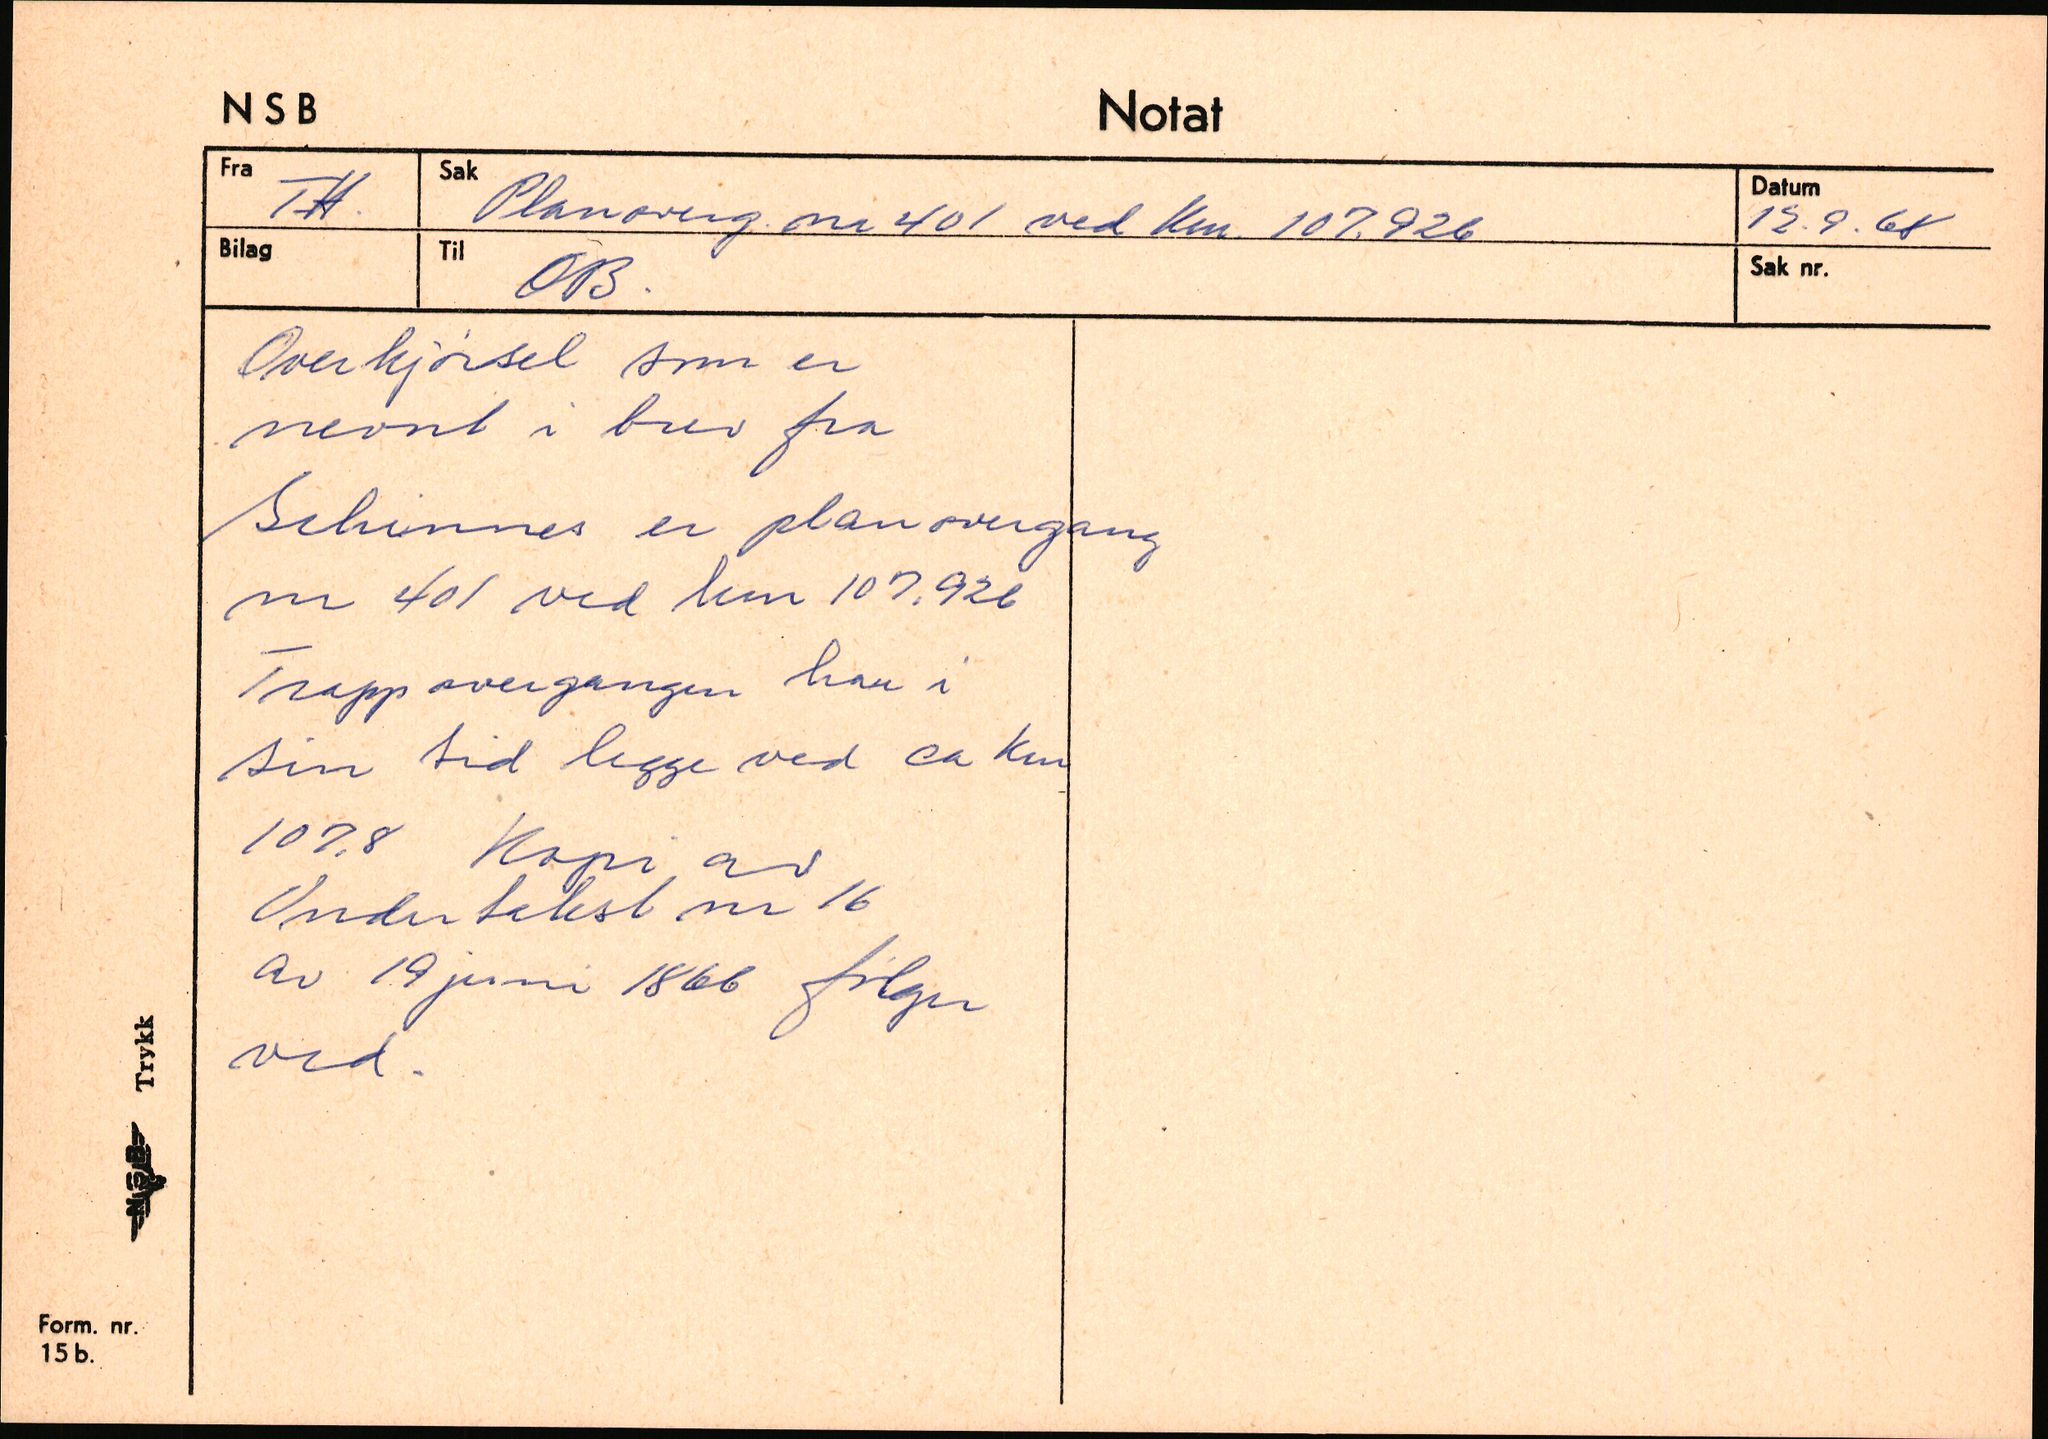 NSB
Notat
Fra TH.
Sak Planoverg. nr 401 ved km. 107.926
Datum 12.9.68
Bilag
Til OB.
Sak nr.
Overkjörsel som er
nevnt i brev fra
Schinnes er planovergang
nr 401 ved km 107.926
Trappovergangen har i
sin tid legge ved ca km
107.8 Kopi av
Undertakst nr 16
av 19 juni 1866 følger
ved.
NSB Trykk
Form. nr.
15b.